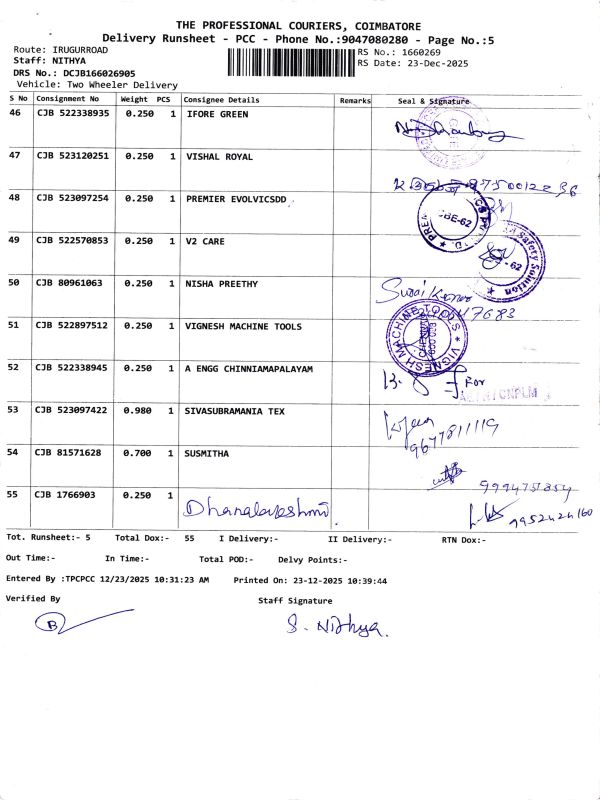 THE PROFESSIONAL COURIERS, COIMBATORE
Delivery Runsheet - PCC - Phone No.:9047080280 - Page No.:5
Route: IRUGURROAD
Staff: NITHYA
DRS No.: DCJB166026905
Vehicle: Two Wheeler Delivery
RS No.: 1660269
RS Date: 23-Dec-2025
S No Consignment No Weight PCS Consignee Details Remarks Seal & Signature
46 CJB 522338935 0.250 1 IFORE GREEN
47 CJB 523120251 0.250 1 VISHAL ROYAL
48 CJB 523097254 0.250 1 PREMIER EVOLVICSDD
49 CJB 522570853 0.250 1 V2 CARE
Safety Solution
50 CJB 80961063 0.250 1 NISHA PREETHY
47683
51 CJB 522897512 0.250 1 VIGNESH MACHINE TOOLS
VIGNESH MACHINE TOOLS
52 CJB 522338945 0.250 1 A ENGG CHINNIAMAPALAYAM
For
53 CJB 523097422 0.980 1 SIVASUBRAMANIA TEX
9677811119
54 CJB 81571628 0.700 1 SUSMITHA
55 CJB 1766903 0.250 1 Dhanalakshmi.
9952424160
Tot. Runsheet:- 5 Total Dox:- 55 I Delivery:- II Delivery:- RTN Dox:-
Out Time:- In Time:- Total POD:- Delvy Points:-
Entered By :TPCPCC 12/23/2025 10:31:23 AM Printed On: 23-12-2025 10:39:44
Verified By Staff Signature
B S. Nithya.